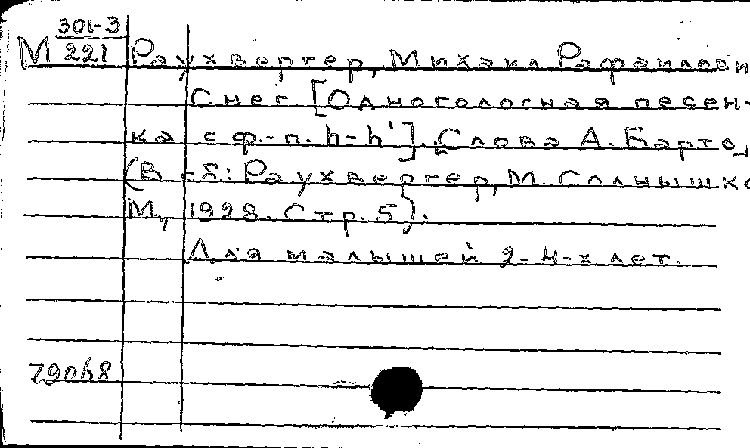 301-3
М 221 Раухвергер, Михаил Рафаилови
Снег [Одноголосная песен-
ка с ф.-п. h-h']. Слова А. Барто,
(В сб: Раухвергер, М. Солнышко
М, 1928. Стр. 5).
Для малышей 2-4-х лет.
79048